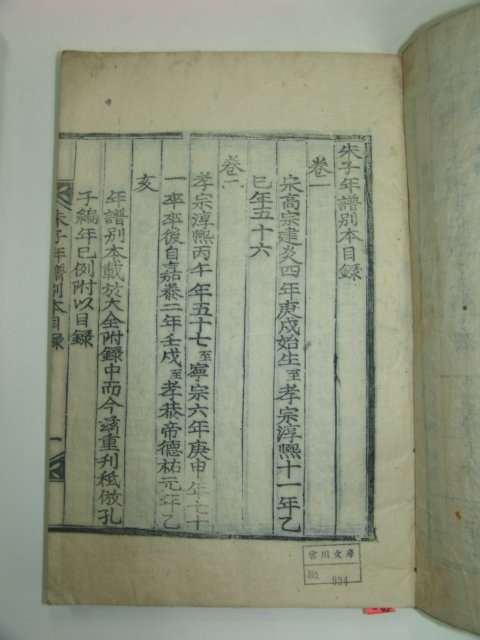 朱子年譜別本目錄
卷一
宋高宗建炎四年庚戌始生至孝宗淳熙十一年乙
巳年五十六
卷二
孝宗淳熙丙午年五十七至寧宗六年庚申年七十
一卒卒後自嘉泰二年壬戌至孝恭帝德祐元年乙
亥
年譜別本載於大全附錄中而今爲重刊秪倣孔
子編年已例附以目錄
朱子年譜別本目錄
宮川文庫
NO. 934